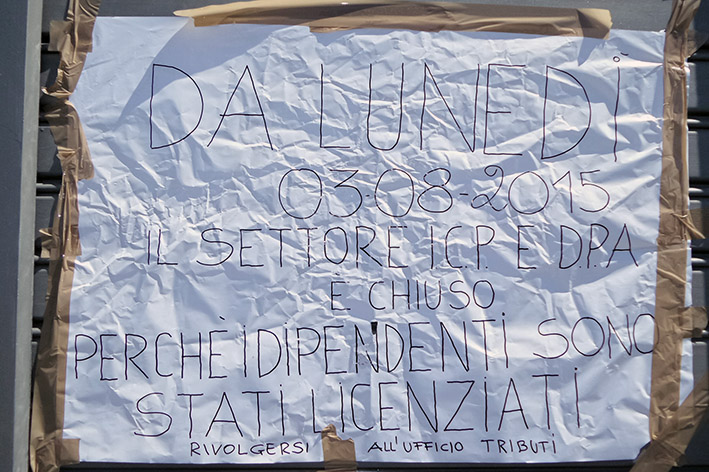 DA LUNEDÌ
03-08-2015
IL SETTORE I.C.P. E D.P.A
È CHIUSO
PERCHÈ I DIPENDENTI SONO
STATI LICENZIATI
RIVOLGERSI ALL'UFFICIO TRIBUTI